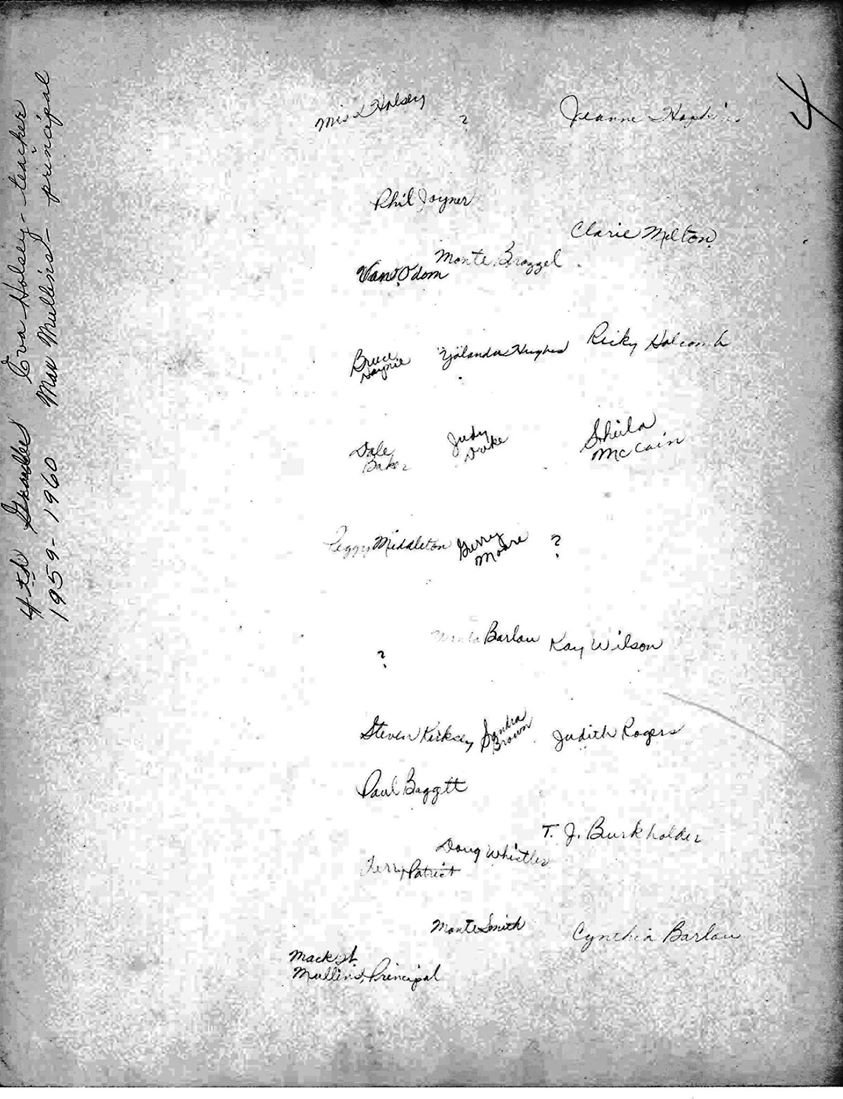 4th Grade Eva Holsey - teacher
1959-1960 Max Mullins - principal
4
Miss Holsey ? Jeanne
Phil Joyner
Clarie Melton
Monte Brazzel
Van Odom
Bruce
Haynie
Yolanda Hughes
Ricky Holcomb
Dale
Baker
Judy
Duke
Sheila
McCain
Peggy Middleton
Gerry
Moore
?
?
Barlau
Kay Wilson
Steven Kirksey
Sandra
Brown
Judith Rogers
Paul Baggett
T. J. Burkholder
Doug Whistler
Terry Patrict
Monte Smith
Cynthia Barlau
Mack
Mullins, Principal